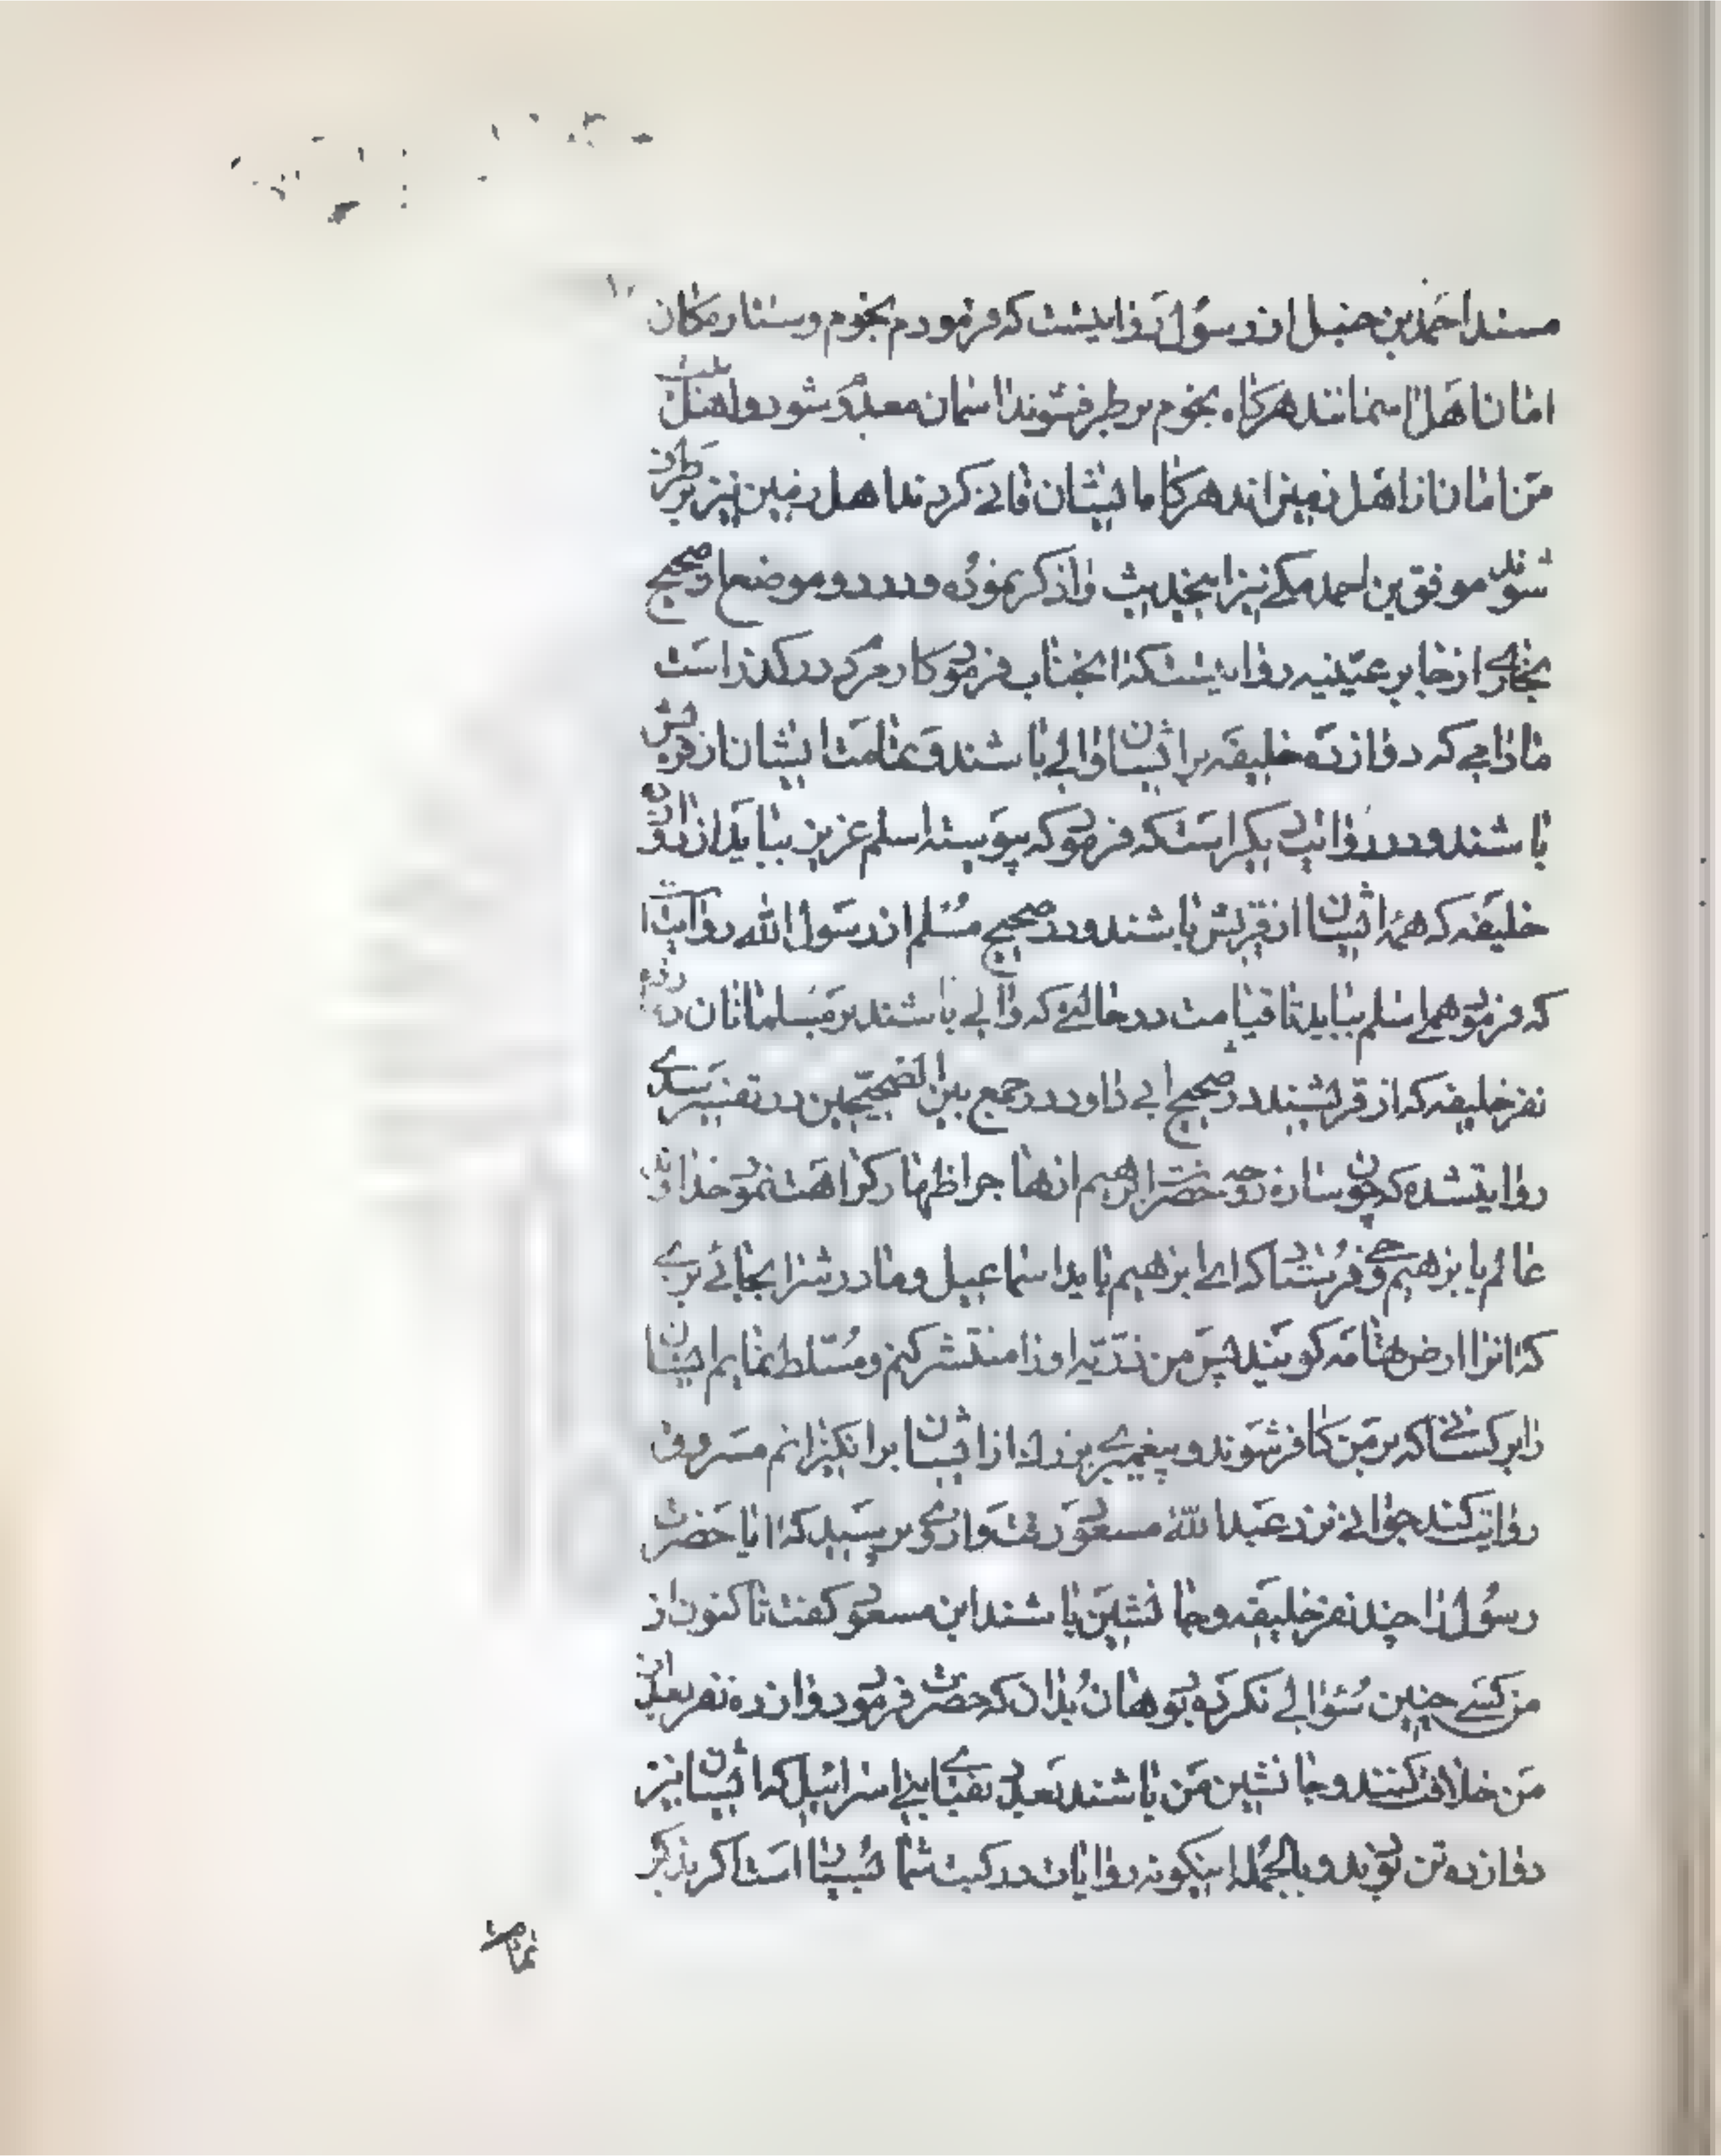 مسند احمد بن حنبل از رسول روایتست که فرمود نجوم و ستارگان
امان اهل اسمانند هرگاه نجوم برطرف شوند اسمان معدوم شود و اهلبیت
من امانان اهل زمین اند هرگاه ایشان فانی گردند اهل زمین نیز برطرف
شوند موفق بن احمد مکی نیز اینحدیث را ذکر نموده و در دو موضع از صحیح
بخاری از جابر عیینه روایتست که انجناب فرمود کار مردم در گذر است
مادامی که دوازده خلیفه بر ایشان والی باشند و تمامت ایشان از قریش
باشند و در روایت دیگر است که فرمود که پیوسته اسلام عزیز بپاید از دوازده
خلیفه که همه ایشان از قریش باشند و در صحیح مسلم از رسول الله روایت است
که فرمود همی اسلام بپاید تا قیامت در حالتی که والی باشند بر مسلمانان دوازده
نفر خلیفه که از قریشند در صحیح ابی داود در جمع بین الصحیحین در تفسیر سدی
روایتشده که چون ساره زوجه حضرت ابراهیم از هاجر اظهار کراهت نمود خداوند
عالم بابرهیم وحی فرستاد که ای ابرهیم باید اسماعیل و مادرش را بجائی بری
که انرا ارض تهامه گویند پس من ذریه او را منتشر کنم و مسلط نمایم ایشان
را بر کسانی که بر من کافر شوند و پیغمبری بزرگ از ایشان برانگیزانم مسروق
روایت کند جوانی نزد عبدالله مسعود رفت و از وی پرسید که ایا حضرت
رسول را چند نفر خلیفه و جانشین باشند ابن مسعود گفت تا کنون از
من کسی چنین سئوالی نکرده بود هان بدان که حضرت فرمود دوازده نفر بعد از
من خلافت کنند و جانشین من باشند بعدد نقبای بنی اسرائیل که ایشان نیز
دوازده تن بودند و بالجمله اینگونه روایات در کتب شما بسیار است اگر بذکر
تمامت